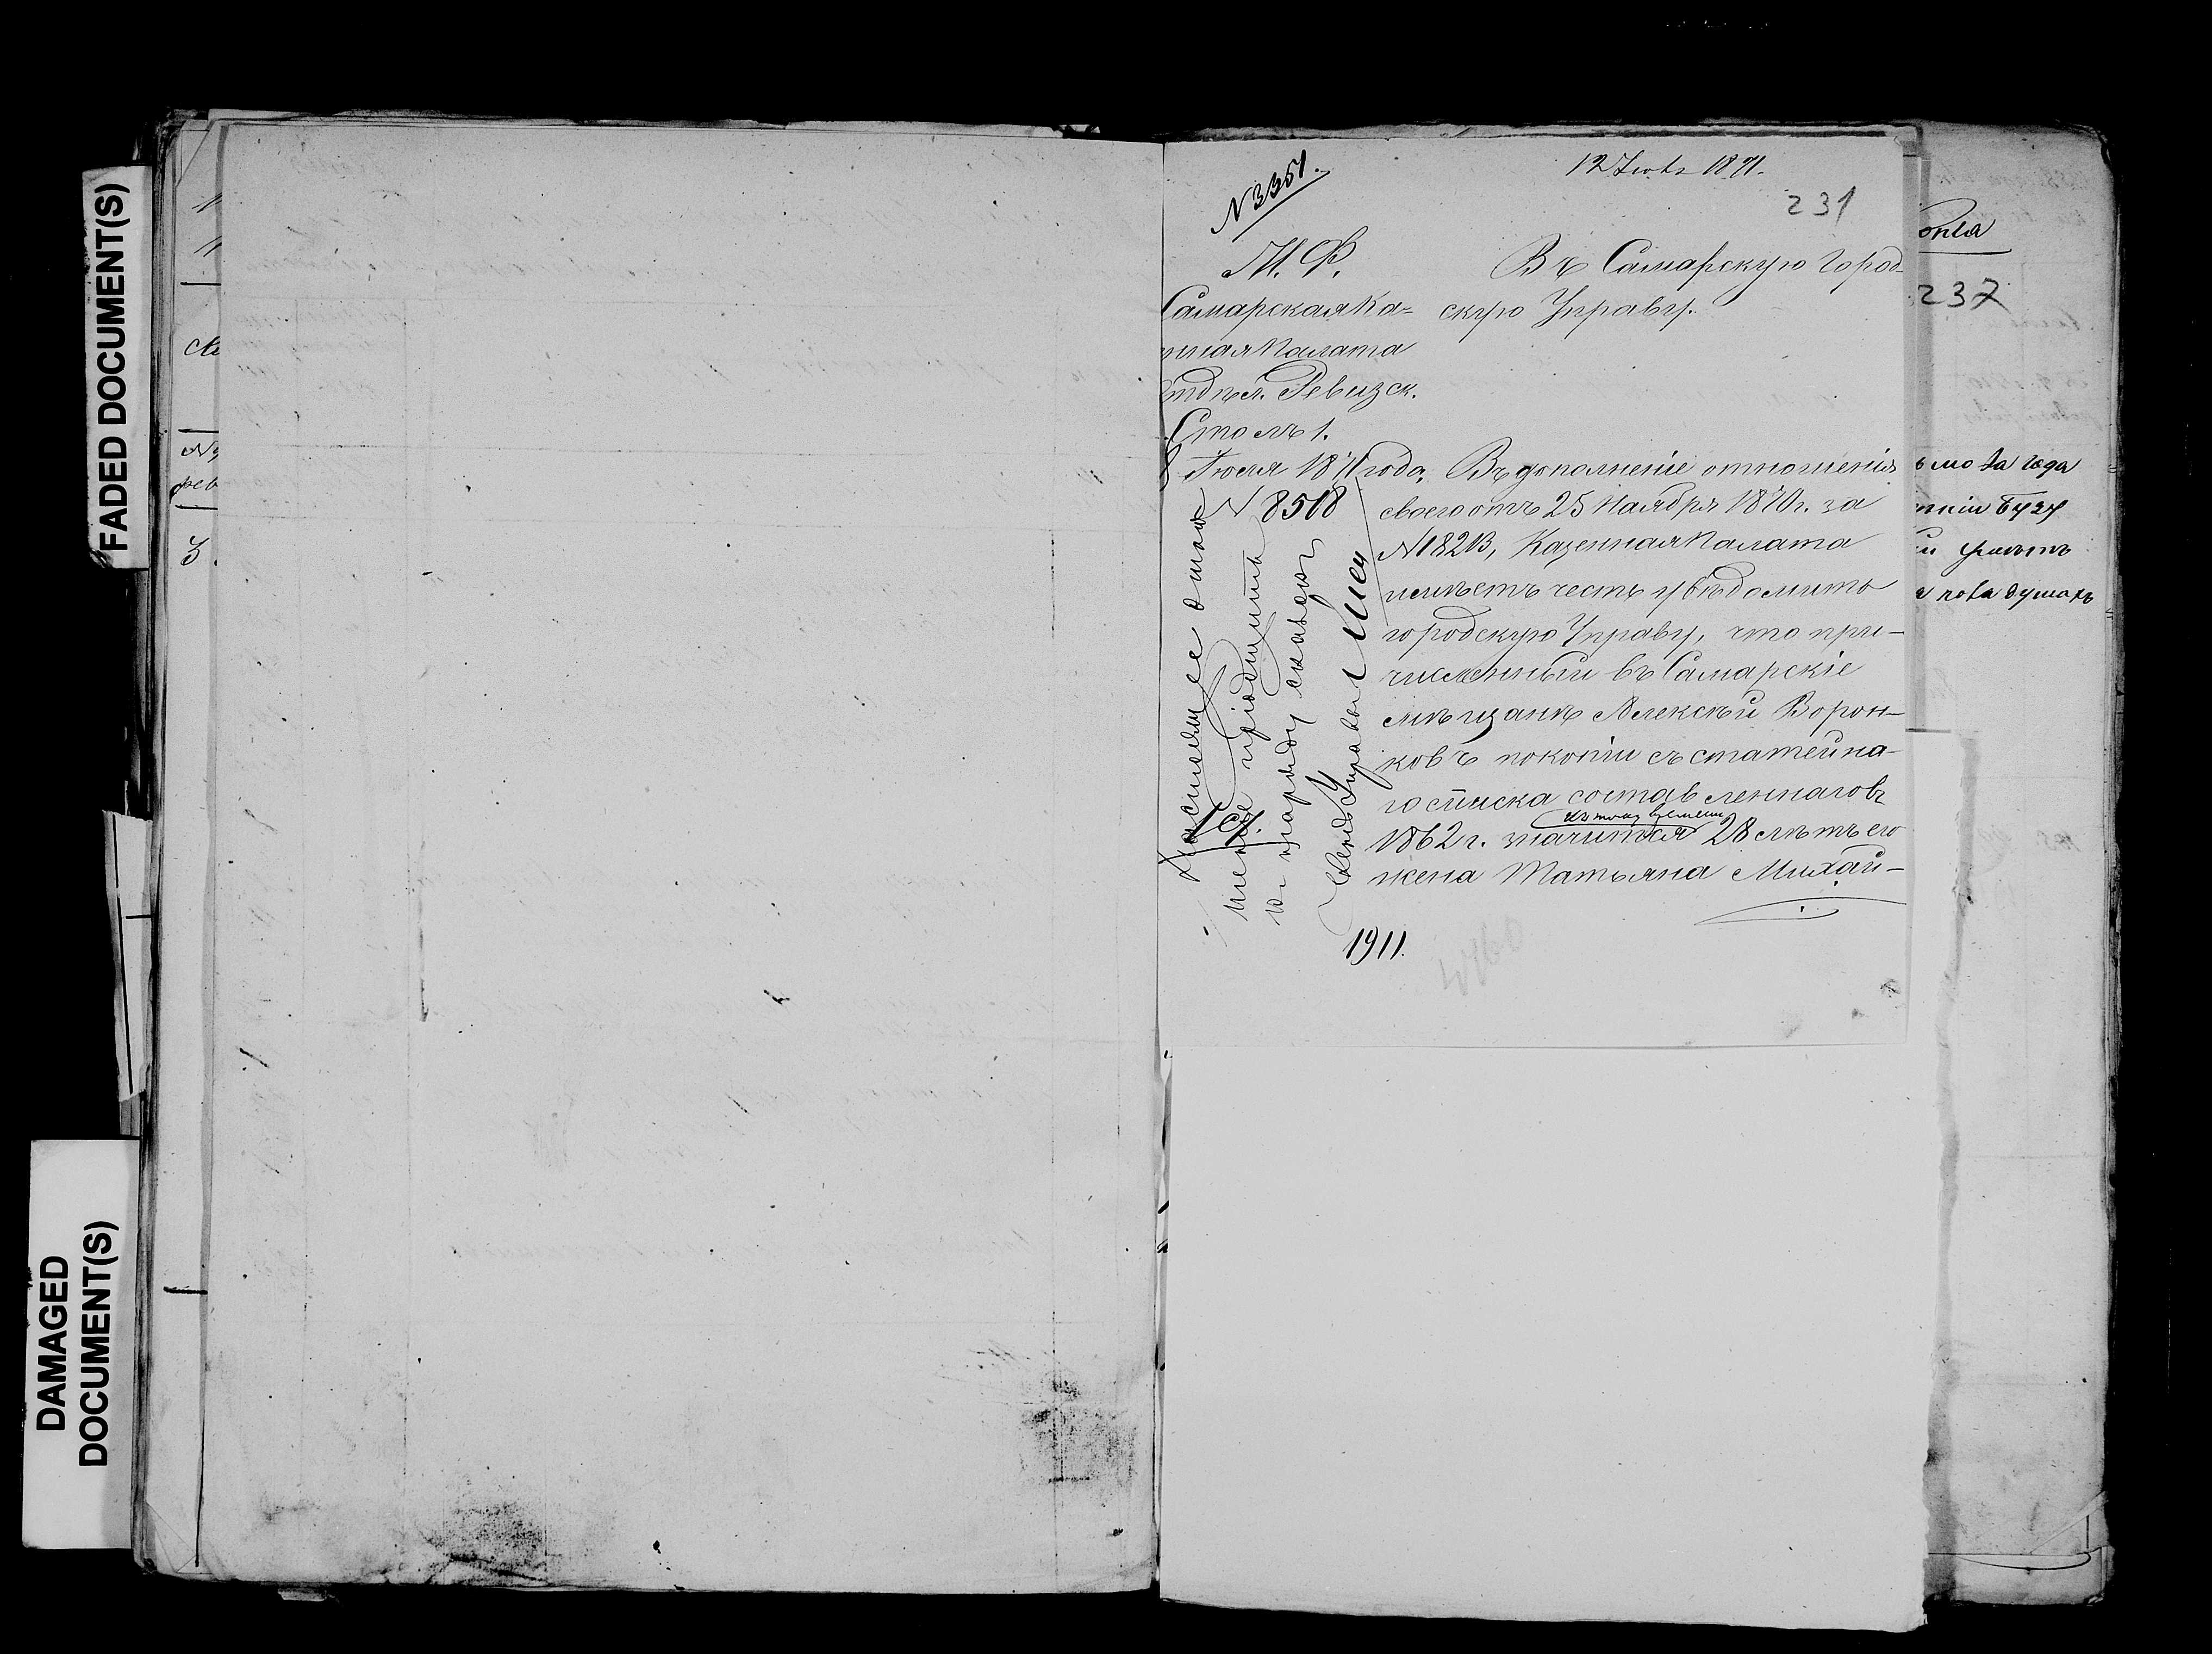 FADED DOCUMENT(S)
DAMAGED
DOCUMENT(S)
N 3351.
12 Июля 1871.
231
М. Ф.
Самарская Ка=
зенная Палата
Отдѣл. Ревизск.
Столъ 1.
8 Июля 1871 года.
N 8518
Въ Самарскую Город-
скую Управу.
Въ дополненіе отношенія
своего отъ 25 Ноября 1870 г. за
N 18213, Казенная Палата
имѣетъ честь увѣдомить
городскую Управу, что при-
численный въ Самарскіе
мѣщане Алексѣй Ворон-
ковъ по копіи съ статейна-
го списка составленнаго въ
къ тому времени
1862 г. значится 28 лѣтъ его
жена Татьяна Михай-
Настоящее отно
шеніе пріобщить
къ наряду сказокъ
Членъ Управы
1911.
237
ьмо да года
душахъ